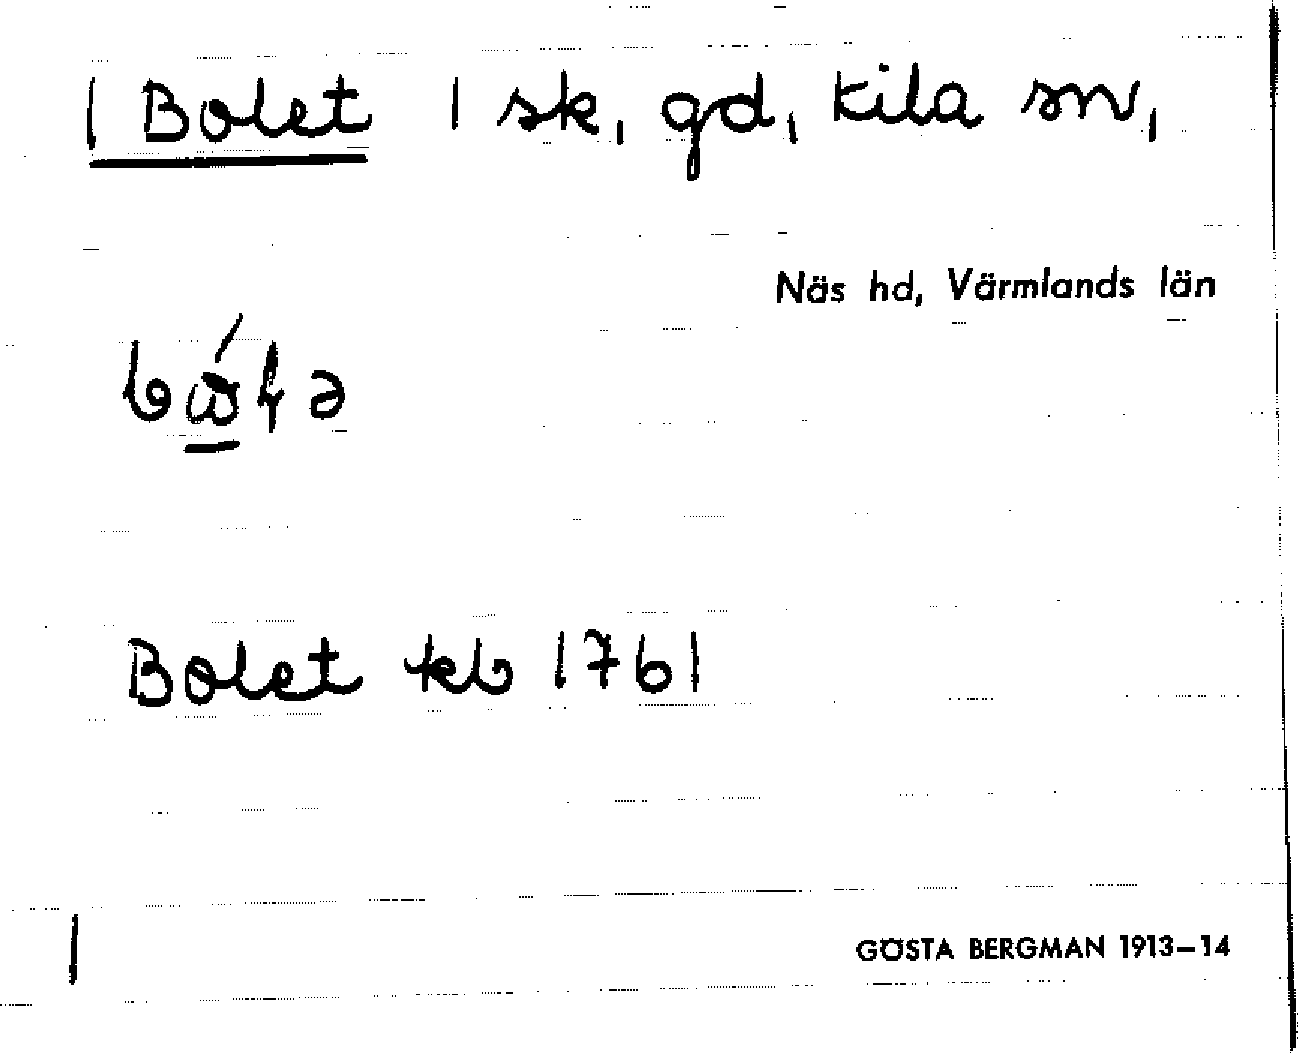 1 Bolet 1 sk, gd, Kila sn,
Näs hd, Värmlands län
Bolet kb 1761
1
GÖSTA BERGMAN 1913–14